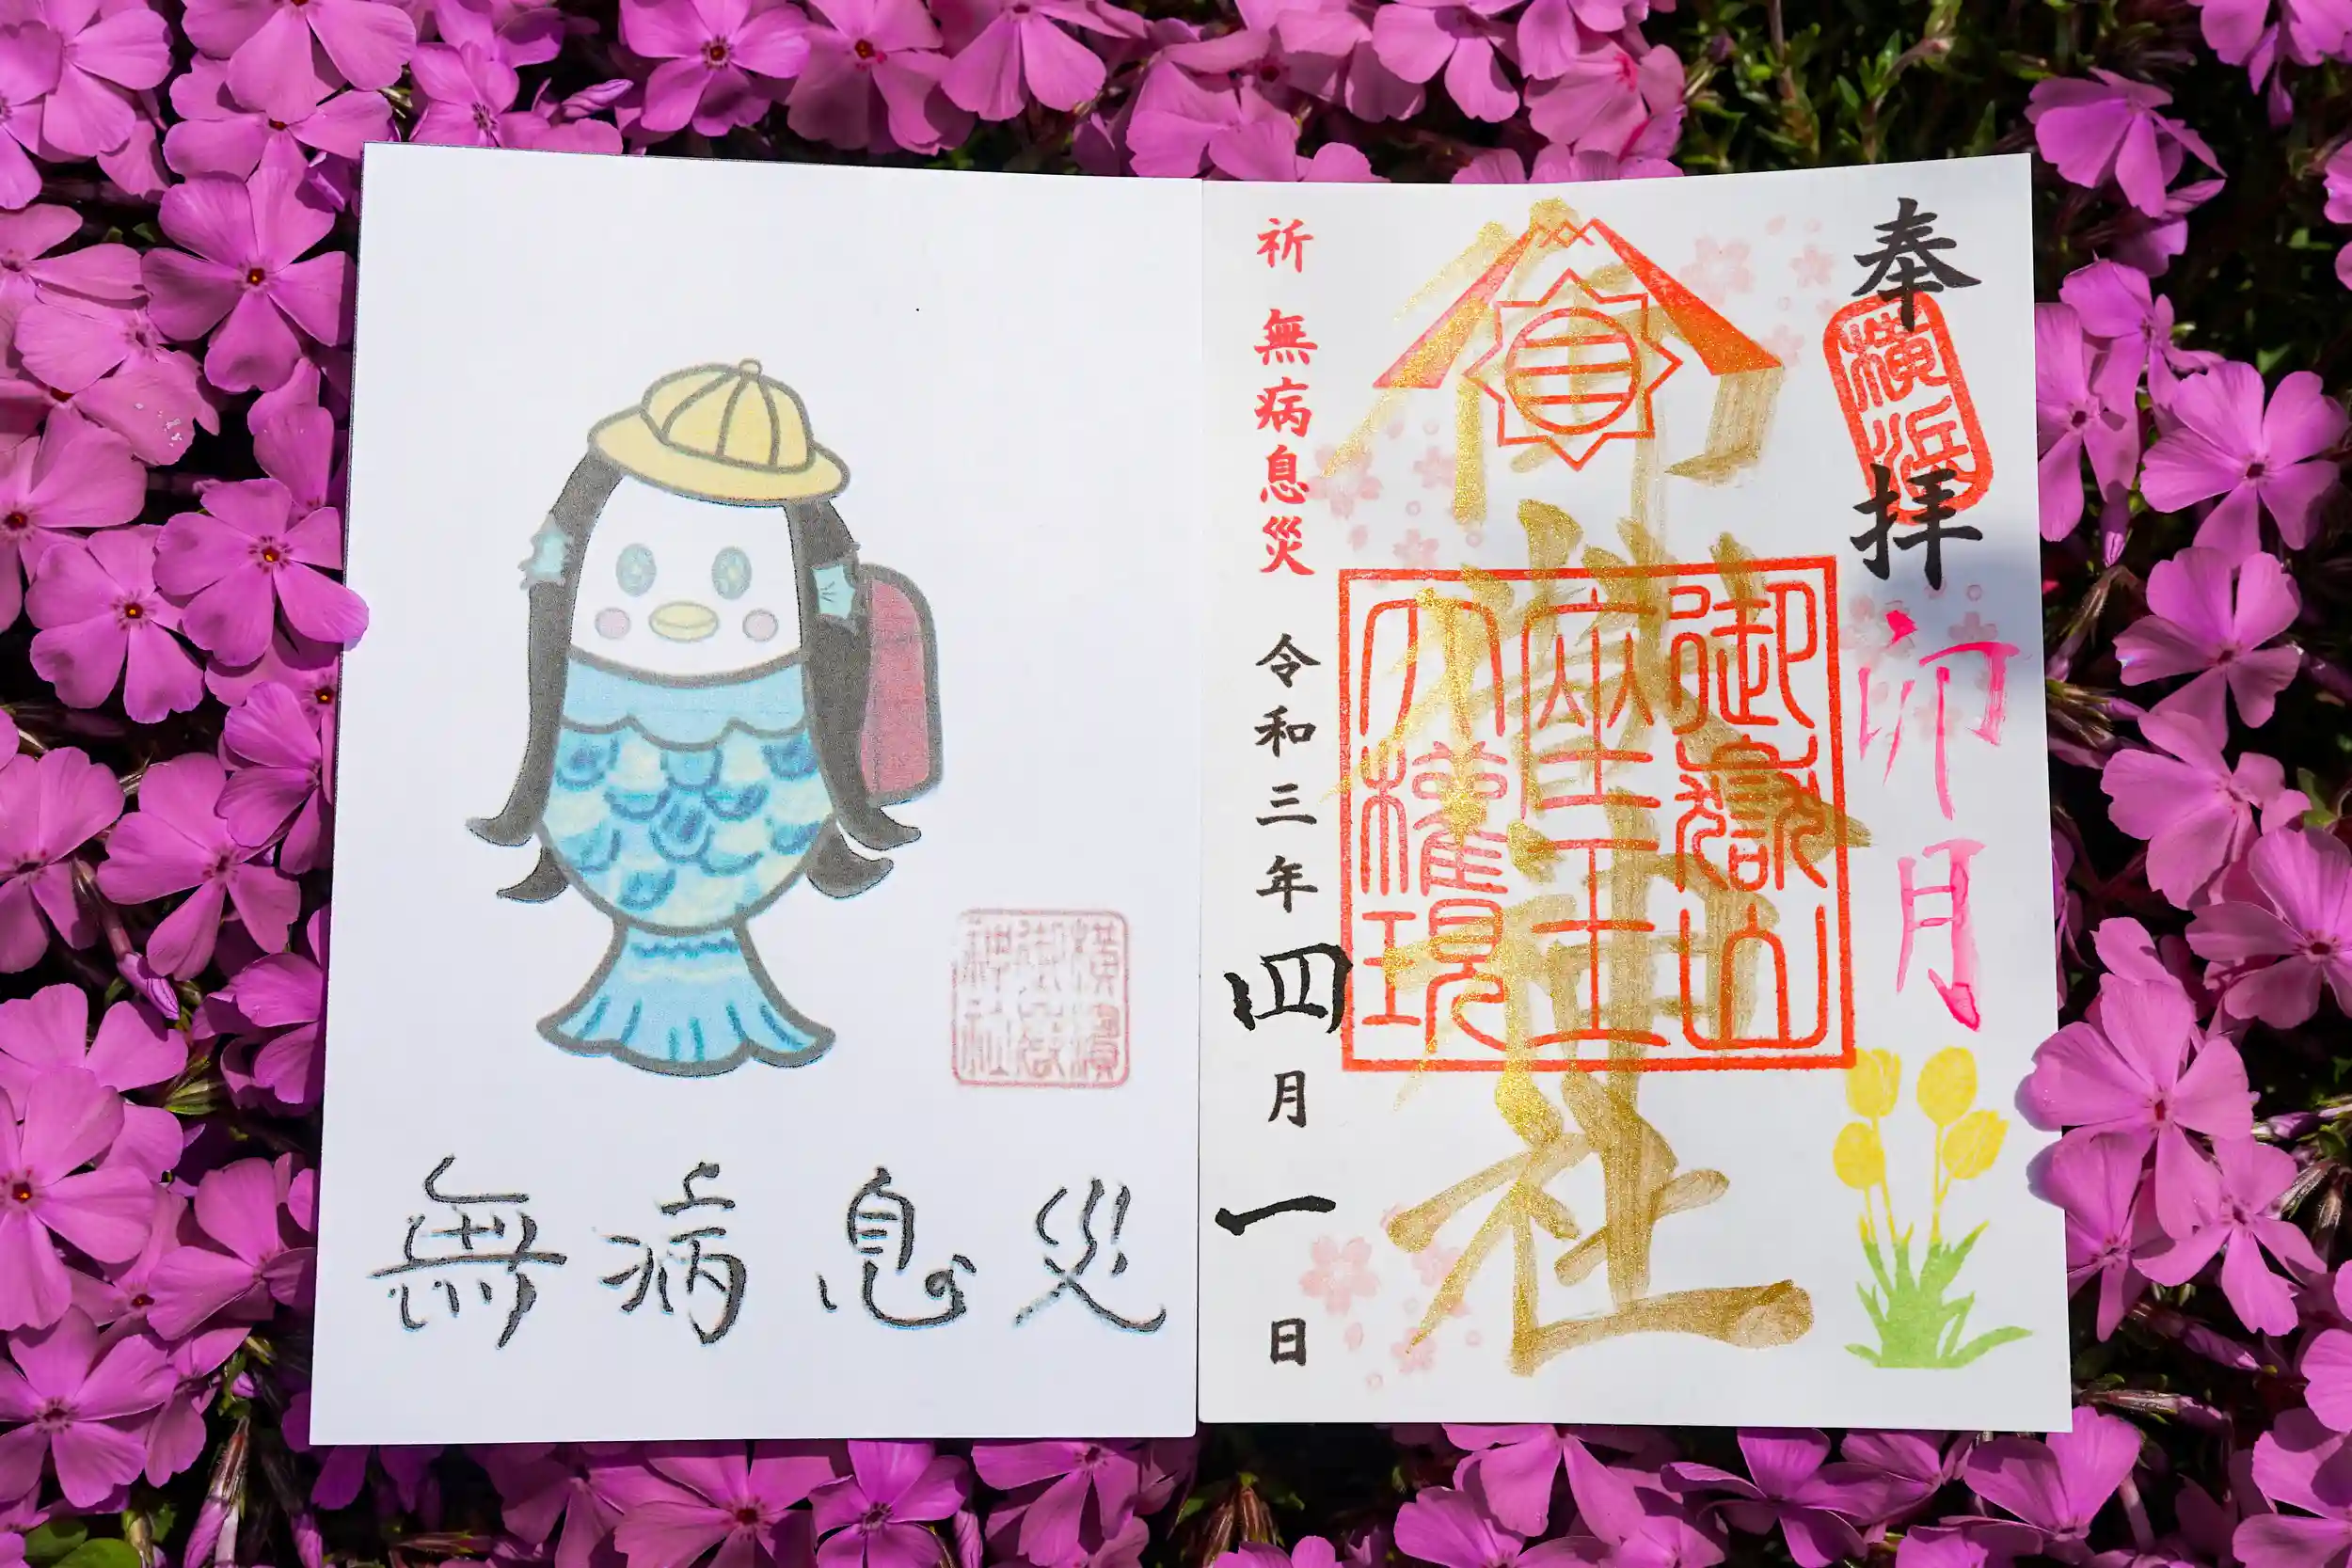 奉拝
横浜
卯月
御嶽神社
御嶽山
座王
大權現
祈 無病息災
令和三年四月一日
横濱
御嶽
神社
無病息災